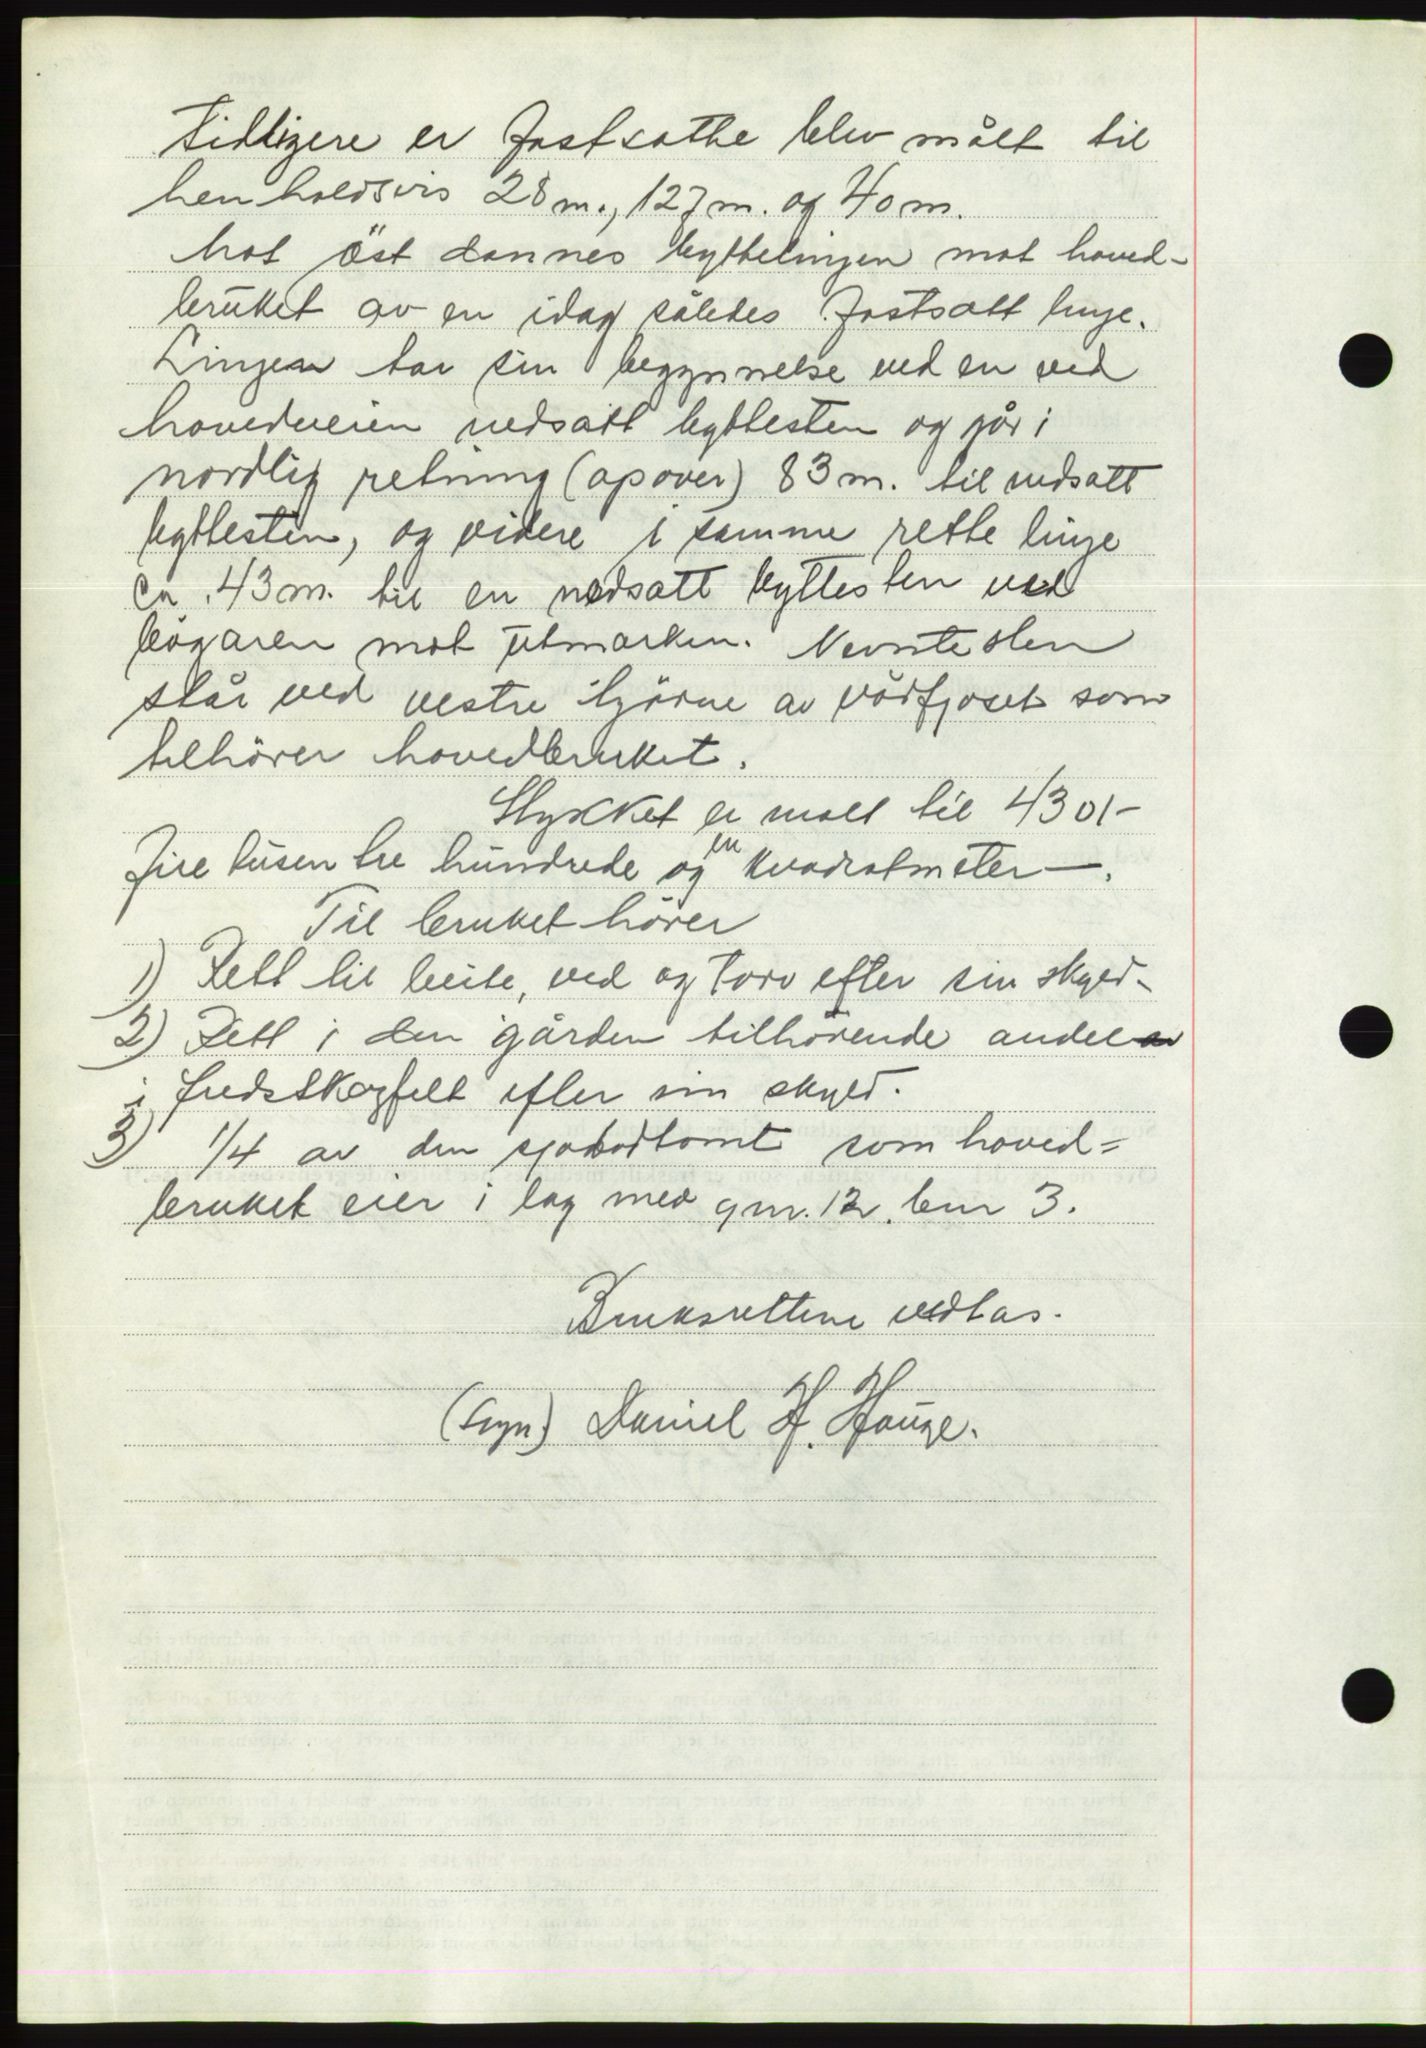 tidligere er fastsatte blev målt til
henholdsvis 28 m., 127 m. og 40 m.
Mot öst dannes byttelinjen mot hoved-
bruket av en idag således fastsatt linje.
Linjen tar sin begynnelse ved en ved
hovedveien nedsatt byttesten og går i
nordlig retning (opover) 83 m. til nedsatt
byttesten, og videre i samme rette linje
ca. 43 m. til en nedsatt byttesten ved
bögaren mot utmarken. Nevnte sten
står ved vestre hjörne av vårfjoset som
tilhörer hovedbruket.
Stykket er målt til 4301-
fire tusen tre hundrede og en kvadratmeter—.
Til bruket hörer
1) Rett til beite, ved og torv efter sin skyld-
2) Rett i den gården tilhörende andel
i fredskogfelt efter sin skyld.
3) 1/4 av den sjöbodtomt som hoved=
bruket eier i lag med gnr. 12, bnr 3.
Bruksrettene vedtas.
(sign) Daniel H. Hauge.